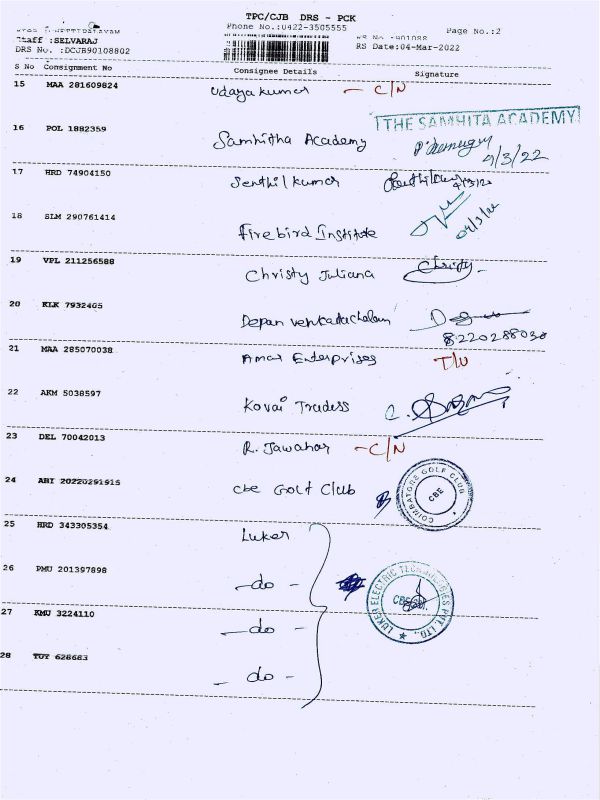 TPC/CJB DRS - PCK
Phone No.:0422-3505555
Page No.:2
Staff :SELVARAJ
DRS No. :DCJB90108802
RS Date:04-Mar-2022
S No Consignment No Consignee Details Signature
15 MAA 281609824 Udayakumar - C/N
16 POL 1882359 Samhitha Academy THE SAMHITA ACADEMY
4/3/22
17 HRD 74904150 Senthil kumar
18 SLM 290761414 Firebird Institute
04/3/22
19 VPL 211256588 Christy Juliana Christy
20 KLK 7932405 Depan venkatachalam
8220288038
21 MAA 285070038 Amar Enterprises T/U
22 AKM 5038597 Kovai Tradess
23 DEL 70042013 R. Jawahar - C/N
24 ABI 20220291915 cbe Golf Club COIMBATORE GOLF CLUB CBE
25 HRD 343305354 Luker
26 PMU 201397898 - do - LUKER ELECTRIC TECHNOLOGIES PVT. LTD.
27 KMU 3224110 - do -
28 TUT 628683 - do -